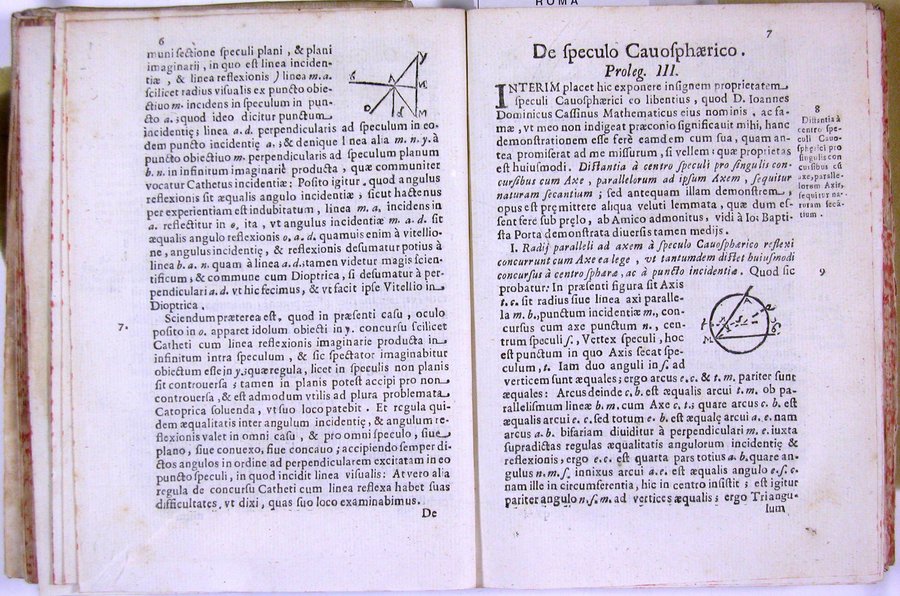 ROMA
6
muni sectione speculi plani , & plani
imaginarii, in quo est linea inciden-
tiæ , & linea reflexionis ) linea m. a.
scilicet radius visualis ex puncto obie-
ctiuo m. incidens in speculum in pun-
cto a.; quod ideo dicitur punctum
incidentię; linea a. d. perpendicularis ad speculum in eo-
dem puncto incidentię a.; & denique linea alia m. n. y. à
puncto obiectiuo m. perpendicularis ad speculum planum
b. n. in infinitum imaginariè producta , quæ communiter
vocatur Cathetus incidentiæ: Posito igitur, quod angulus
reflexionis sit æqualis angulo incidentiæ , sicut hactenus
per experientiam est indubitatum, linea m. a. incidens in
a. reflectitur in o, ita , vt angulus incidentiæ m. a. d. sit
æqualis angulo reflexionis o. a. d. quamuis enim à vitellio-
ne , angulus incidentię, & reflexionis desumatur potius à
linea b. a. n. quam à linea a. d. tamen videtur magis scien-
tificum, & commune cum Dioptrica, si desumatur à per-
pendiculari a. d. vt hic fecimus, & vt facit ipse Vitellio in
Dioptrica .
7. Sciendum præterea est, quod in præsenti casu , oculo
posito in o. apparet idolum obiecti in y. concursu scilicet
Catheti cum linea reflexionis imaginariè producta in
infinitum intra speculum , & sic spectator imaginabitur
obiectum esse in y.; quæ regula, licet in speculis non planis
sit controuersa ; tamen in planis potest accipi pro non
controuersa , & est admodum vtilis ad plura problemata
Catoptrica soluenda, vt suo loco patebit . Et regula qui-
dem æqualitatis inter angulum incidentię, & angulum re-
flexionis valet in omni casu , & pro omni speculo , siue
plano, siue conuexo, siue concauo ; accipiendo semper di-
ctos angulos in ordine ad perpendicularem excitatam in eo
puncto speculi, in quod incidit linea visualis: At vero alia
regula de concursu Catheti cum linea reflexa habet suas
difficultates, vt dixi, quas suo loco examinabimus.
De
b
A
y
N
O
d
M
7
De speculo Cauosphærico .
Proleg. III.
INTERIM placet hic exponere insignem proprietatem
speculi Cauosphærici eo libentius , quod D. Ioannes
Dominicus Cassinus Mathematicus eius nominis , ac fa-
mæ , vt meo non indigeat præconio significauit mihi, hanc
demonstrationem esse ferè eamdem cum sua, quam an-
tea promiserat ad me missurum, si vellem: quæ proprietas
est huiusmodi. Distantia à centro speculi pro singulis con-
cursibus cum Axe , parallelorum ad ipsum Axem , sequitur
naturam secantium ; sed antequam illam demonstrem ,
opus est premittere aliqua veluti lemmata , quæ dum es-
sent ferè sub prelo , ab Amico admonitus, vidi à Io: Bapti-
sta Porta demonstrata diuersis tamen medijs.
8
Distantia à
centro spe-
culi Cauo-
sphęrici pro
singulis con
cursibus cũ
axe, paralle-
lorum Axis,
sequitur na-
turam secã-
tium .
I. Radij paralleli ad axem à speculo Cauosphærico reflexi
concurrunt cum Axe ea lege , vt tantumdem distet huiusmodi
concursus à centro sphæræ, ac à puncto incidentiæ. Quod sic
9
probatur. In præsenti figura sit Axis
t. c. sit radius siue linea axi paralle-
la m. b., punctum incidentiæ m., con-
cursus cum axe punctum n., cen-
trum speculi s., Vertex speculi , hoc
est punctum in quo Axis secat spe-
culum, t. Iam duo anguli in s. ad
verticem sunt æquales; ergo arcus e. c. & t. m. pariter sunt
æquales: Arcus deinde c. b. est æqualis arcui t. m. ob pa-
rallelismum lineæ b. m. cum Axe c. t.; quare arcus c. b. est
æqualis arcui e. c. sed totum e. b. est æquale arcui a. e. nam
arcus a. b. bifariam diuiditur à perpendiculari m. e. iuxta
supradictas regulas æqualitatis angulorum incidentię &
reflexionis; ergo e. c. est quarta pars totius a. b. quare an-
gulus n. m. s. innixus arcui a. e. est æqualis angulo e. s. c.
nam ille in circumferentia, hic in centro insistit ; est igitur
pariter angulo n. s. m. ad vertices æqualis ; ergo Triangu-
lum